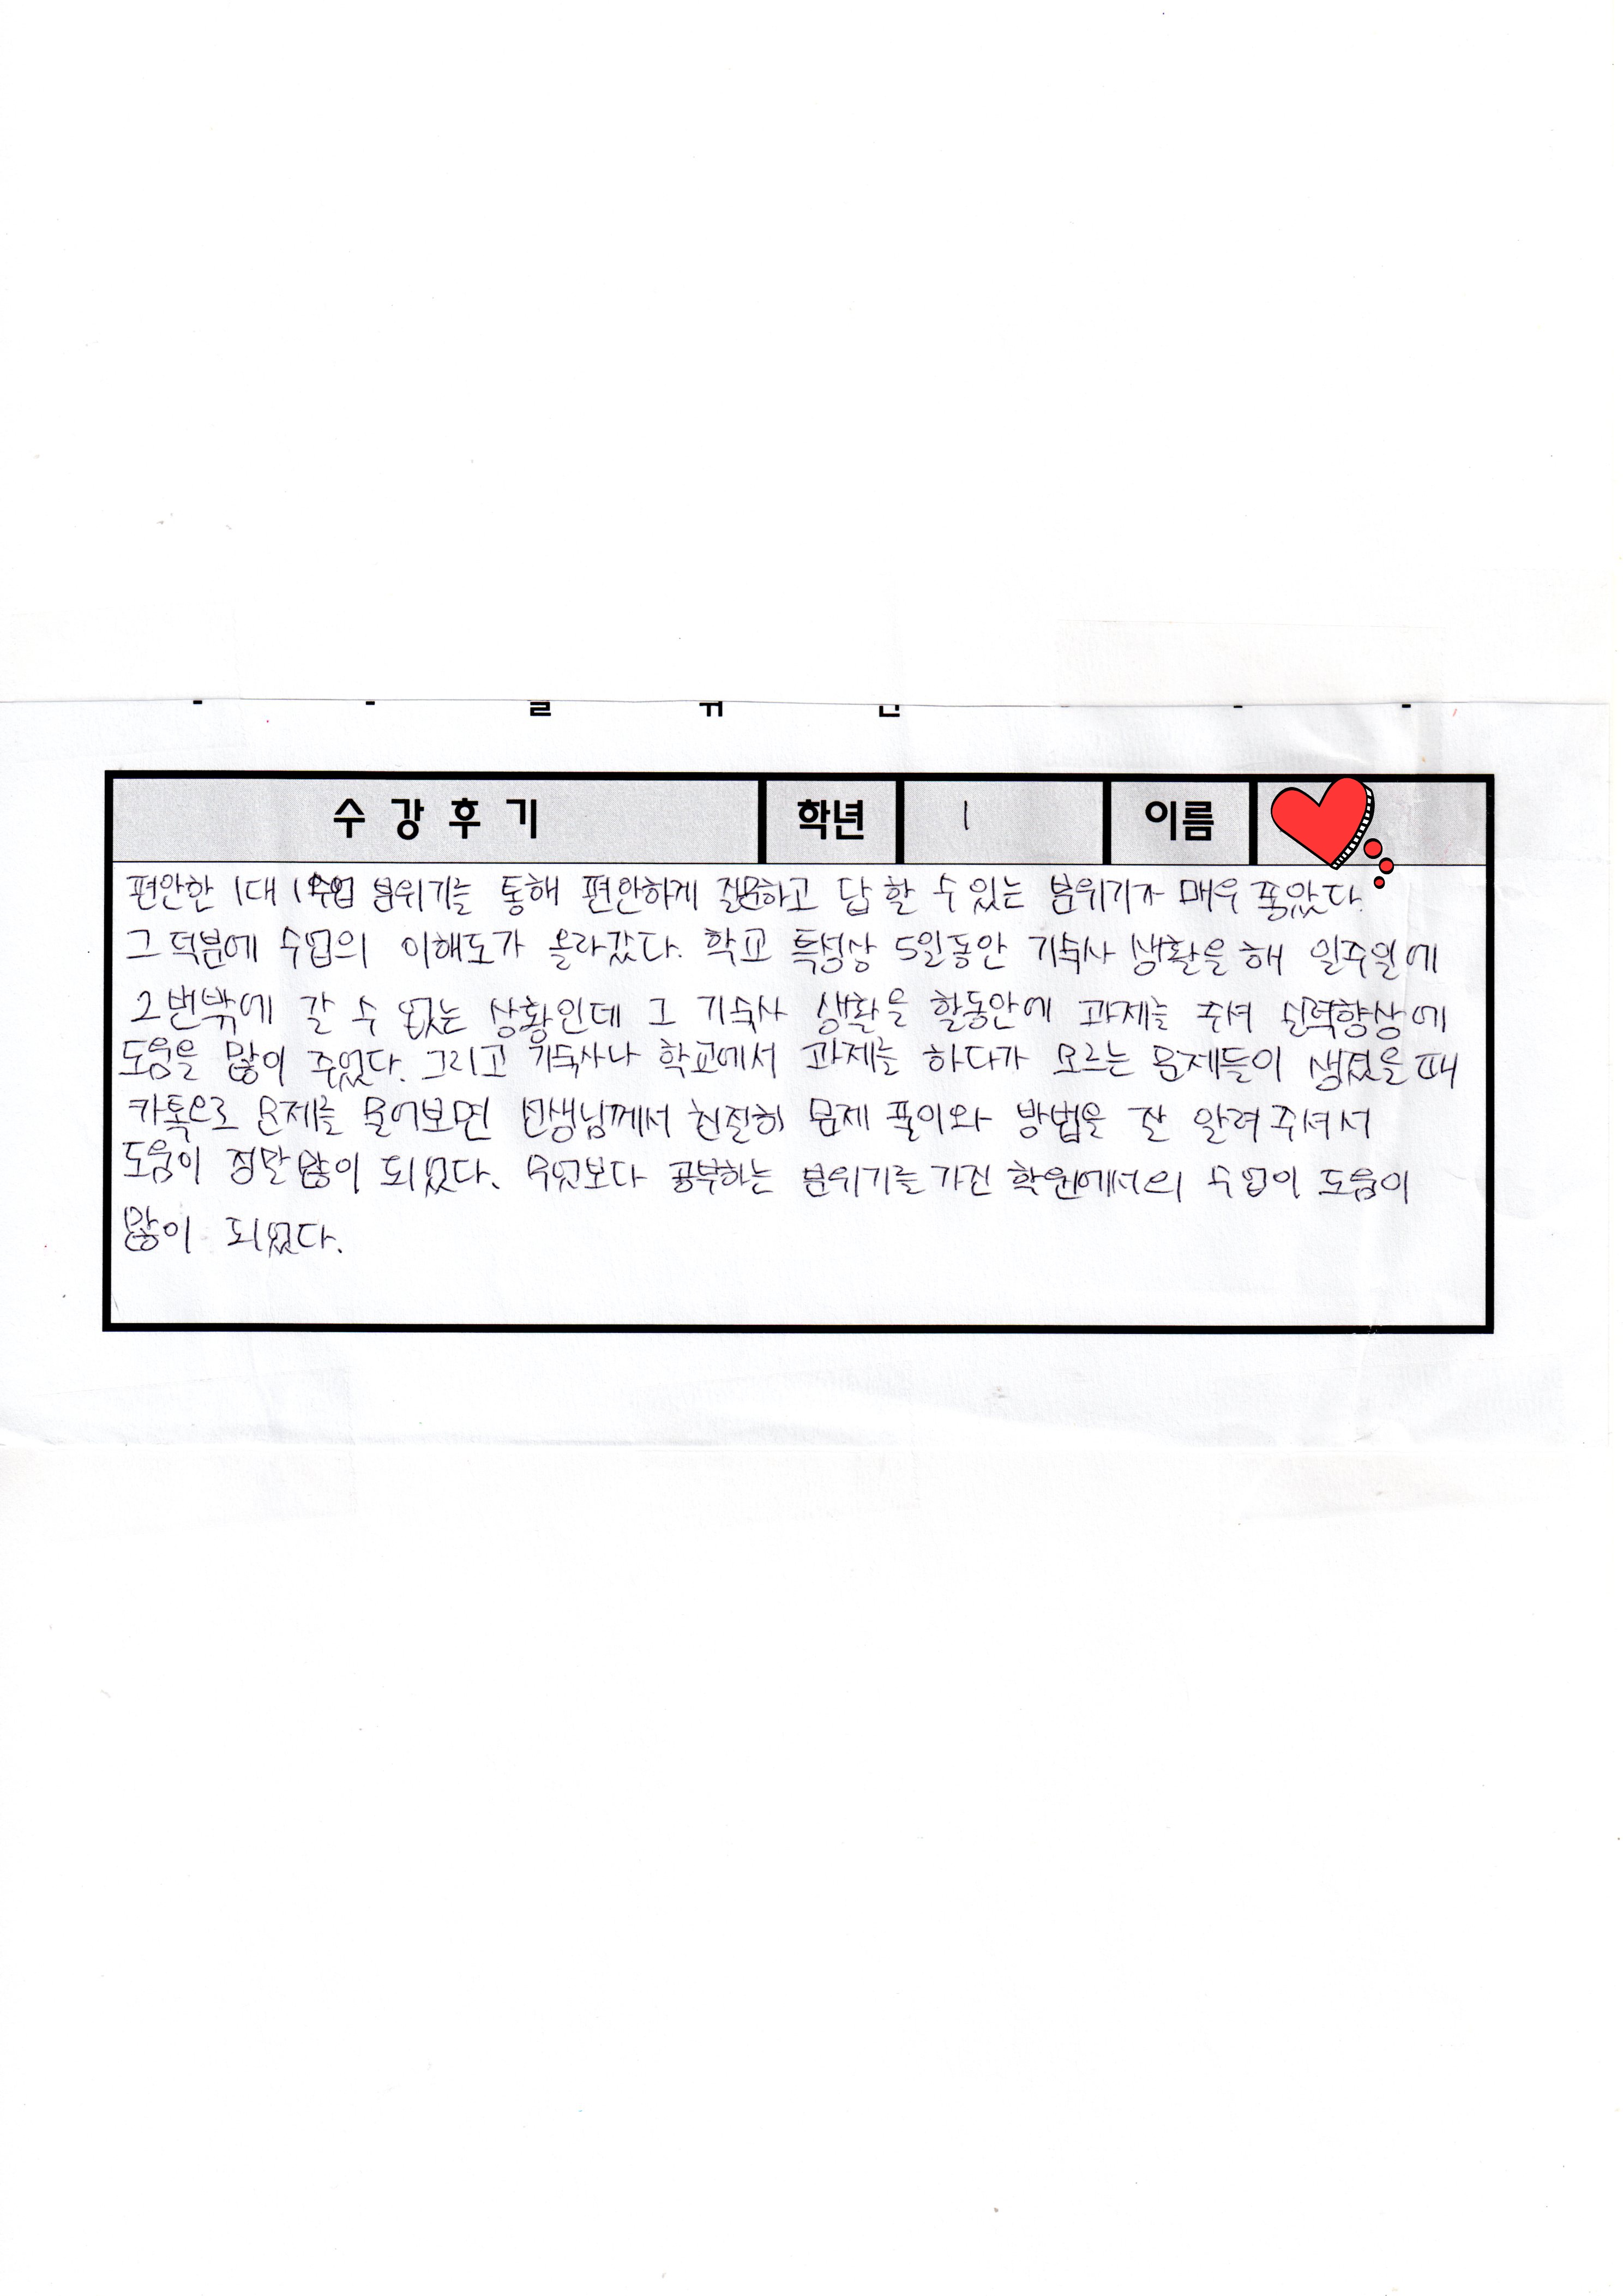 수 강 후 기 학년 1 이름
편안한 1대 1수업 분위기를 통해 편안하게 질문하고 답 할 수 있는 분위기가 매우 좋았다.
그 덕분에 수업의 이해도가 올라갔다. 학교 특성상 5일동안 기숙사 생활을 해 일주일에
2번밖에 갈 수 없는 상황인데 그 기숙사 생활을 할동안에 과제를 주셔 실력향상에
도움을 많이 주었다. 그리고 기숙사나 학교에서 과제를 하다가 모르는 문제들이 생겼을때
카톡으로 문제를 물어보면 선생님께서 친절히 문제 풀이와 방법을 잘 알려주셔서
도움이 정말 많이 되었다. 무엇보다 공부하는 분위기를 가진 학원에서의 수업이 도움이
많이 되었다.